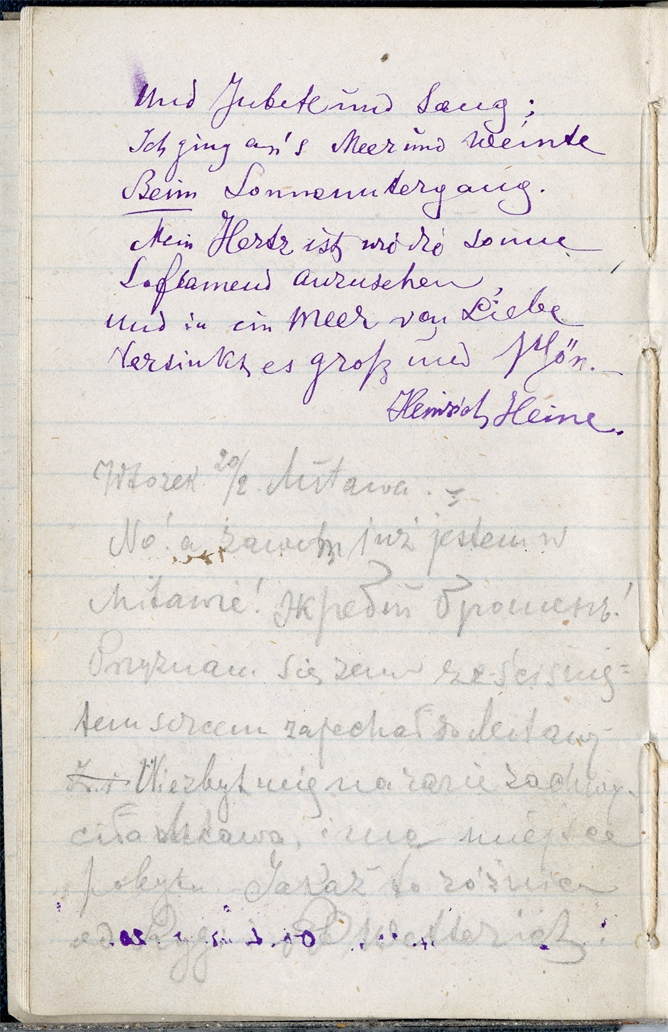 Und Jubelte und Sang;
Ich ging an's Meer und weinte
Beim Sonnenuntergang.
Mein Hertz ist wi di sonne
So flamend anzusehen
Und in ein Meer von Liebe
Versinkt es groß und schön.
Heinrich Heine.
Wtorek 20/2. Mitawa.
No! a zawołm już jestem w
Mitawie! Жребий брошенъ!
Przyznam się żem ze ściśnię-
tem sercem zajechał do Mitawy
Niezbyt mię na razie zachwy-
ciła Mitawa, i me miejsce
pobytu Jakaż to różnica
od Rygi